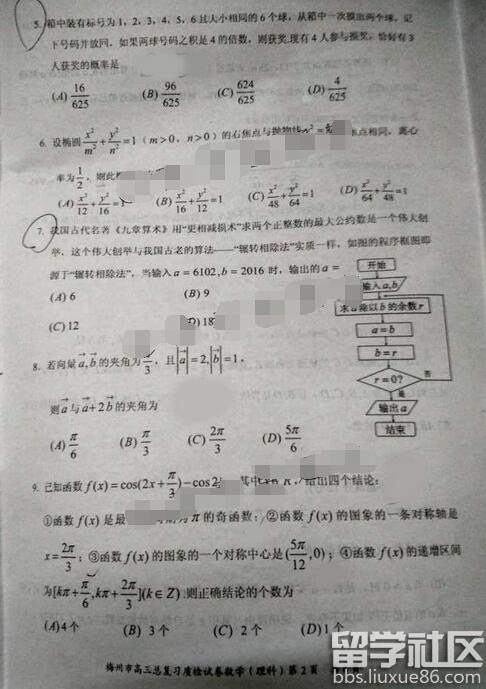 5. 箱中装有标号为1, 2, 3, 4, 5, 6且大小相同的6个球, 从箱中一次摸出两个球, 记
下号码并放回, 如果两球号码之积是4的倍数, 则获奖.现有4人参与摸奖, 恰好有3
人获奖的概率是
(A) 16/625 (B) 96/625 (C) 624/625 (D) 4/625
6. 设椭圆 x²/m² + y²/n² = 1 (m>0, n>0) 的右焦点与抛物线 点相同, 离心
率为 1/2, 则此
(A) x²/12 + y²/16 (B) x²/16 + y²/12 = 1 (C) x²/48 + y²/64 = 1 (D) x²/64 + y²/48 = 1
7. 我国古代名著《九章算术》用“更相减损术”求两个正整数的最大公约数是一个伟大创
举, 这个伟大创举与我国古老的算法——“辗转相除法”实质一样, 如图的程序框图即
源于“辗转相除法”, 当输入a = 6102, b = 2016 时, 输出的a =
(A) 6 (B) 9
(C) 12 (D) 18
开始
输入a,b
求a除以b的余数r
a = b
b = r
r = 0?
否
是
输出a
结束
8. 若向量a⃗,b⃗的夹角为 π/3, 且|a⃗| = 2,|b⃗| = 1,
则a⃗与a⃗+2b⃗的夹角为
(A) π/6 (B) π/3 (C) 2π/3 (D) 5π/6
9. 已知函数 f(x) = cos(2x + π/3) − cos2 其中 给出四个结论:
①函数 f(x) 是最 为π的奇函数; ②函数 f(x) 的图象的一条对称轴是
x = 2π/3; ③函数 f(x) 的图象的一个对称中心是(5π/12,0); ④函数 f(x) 的递增区间
为[kπ + π/6, kπ + 2π/3](k∈Z).则正确结论的个数为
(A)4个 (B) 3个 (C) 2个 (D)1个
梅州市高三总复习质检试卷数学(理科)第2页
学社区
bbs.liuxue86.com